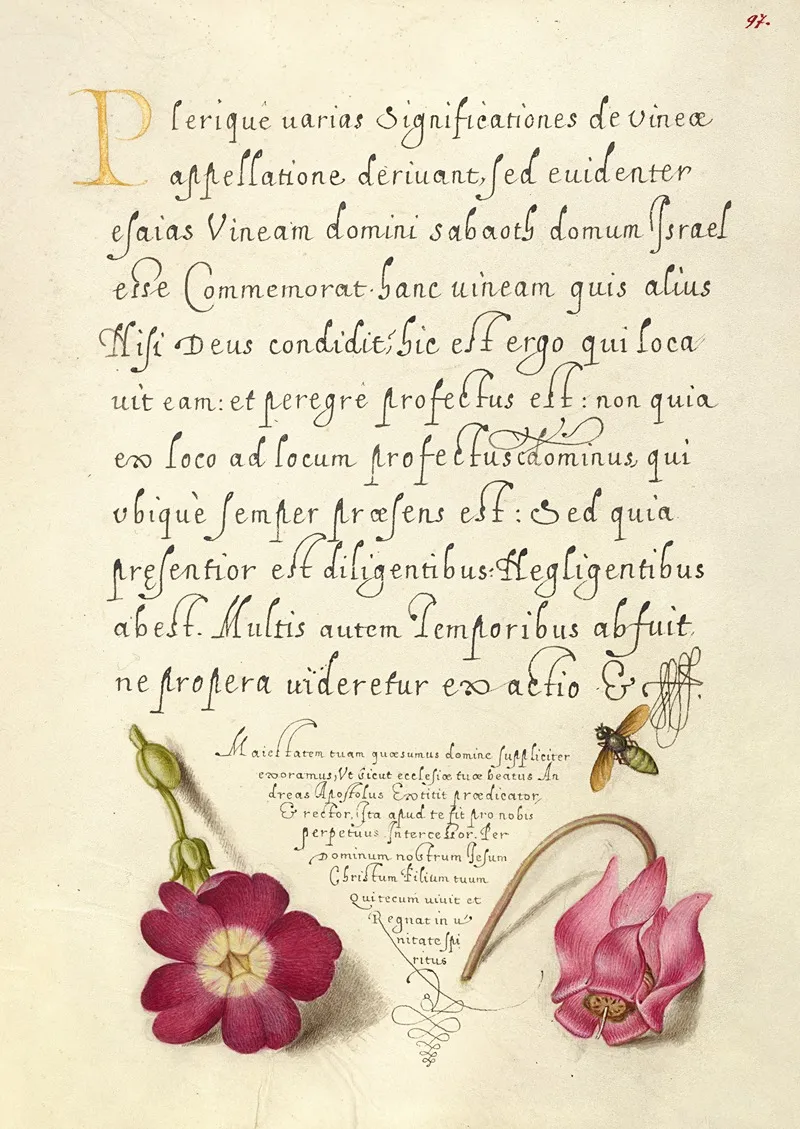 97.
Plerique uarias Significationes de vineæ
appellatione deriuant, sed euidenter
esaias Vineam domini sabaoth domum Israel
esse Commemorat. hanc uineam quis alius
Nisi Deus condidit, hic est ergo qui loca
uit eam: et peregrè profectus est: non quia
ex loco ad locum profectus dominus, qui
vbique semper præsens est: Sed quia
pręsentior est diligentibus: Negligentibus
abest. Multis autem Temporibus abfuit,
ne propera uideretur exactio &
Maiestatem tuam quæsumus domine suppliciter
exoramus, Vt sicut ecclesiæ tuæ beatus An
dreas Apostolus Extitit prædicator,
& rector, Ita apud te sit pro nobis
perpetuus Intercessor. Per
Dominum nostrum Iesum
Christum Filium tuum
Qui tecum uiuit et
Regnat in u
nitate spi
ritus